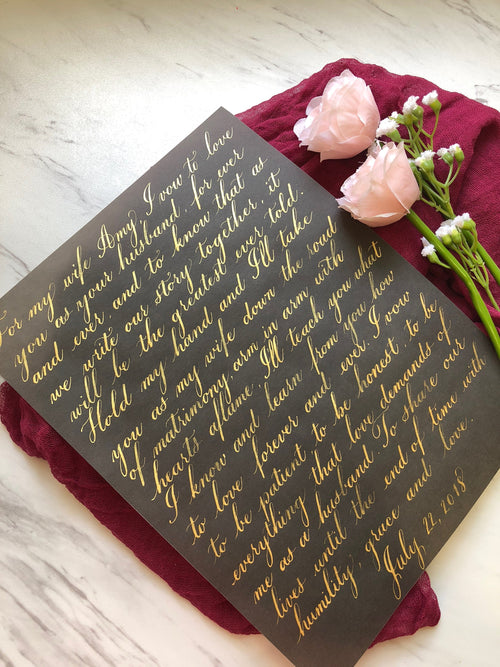 For my wife Amy, I vow to love
you as your husband, for ever
and ever and to know that as
we write our story together, it
will be the greatest ever told.
Hold my hand and I'll take
you as my wife down the road
of matrimony arm in arm with
hearts aflame. I'll teach you what
I know and learn from you how
to love forever and ever. I vow
to be patient to be honest to be
everything that love demands of
me as a husband. To share our
lives until the end of time with
humility, grace and love.
July 22, 2018